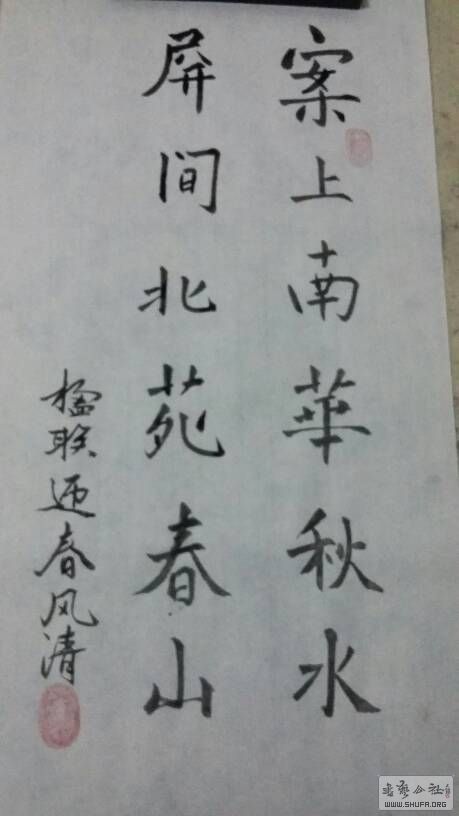 案上南華秋水
屏间北苑春山
楹联迎春风清
书法公社
WWW.SHUFA.ORG